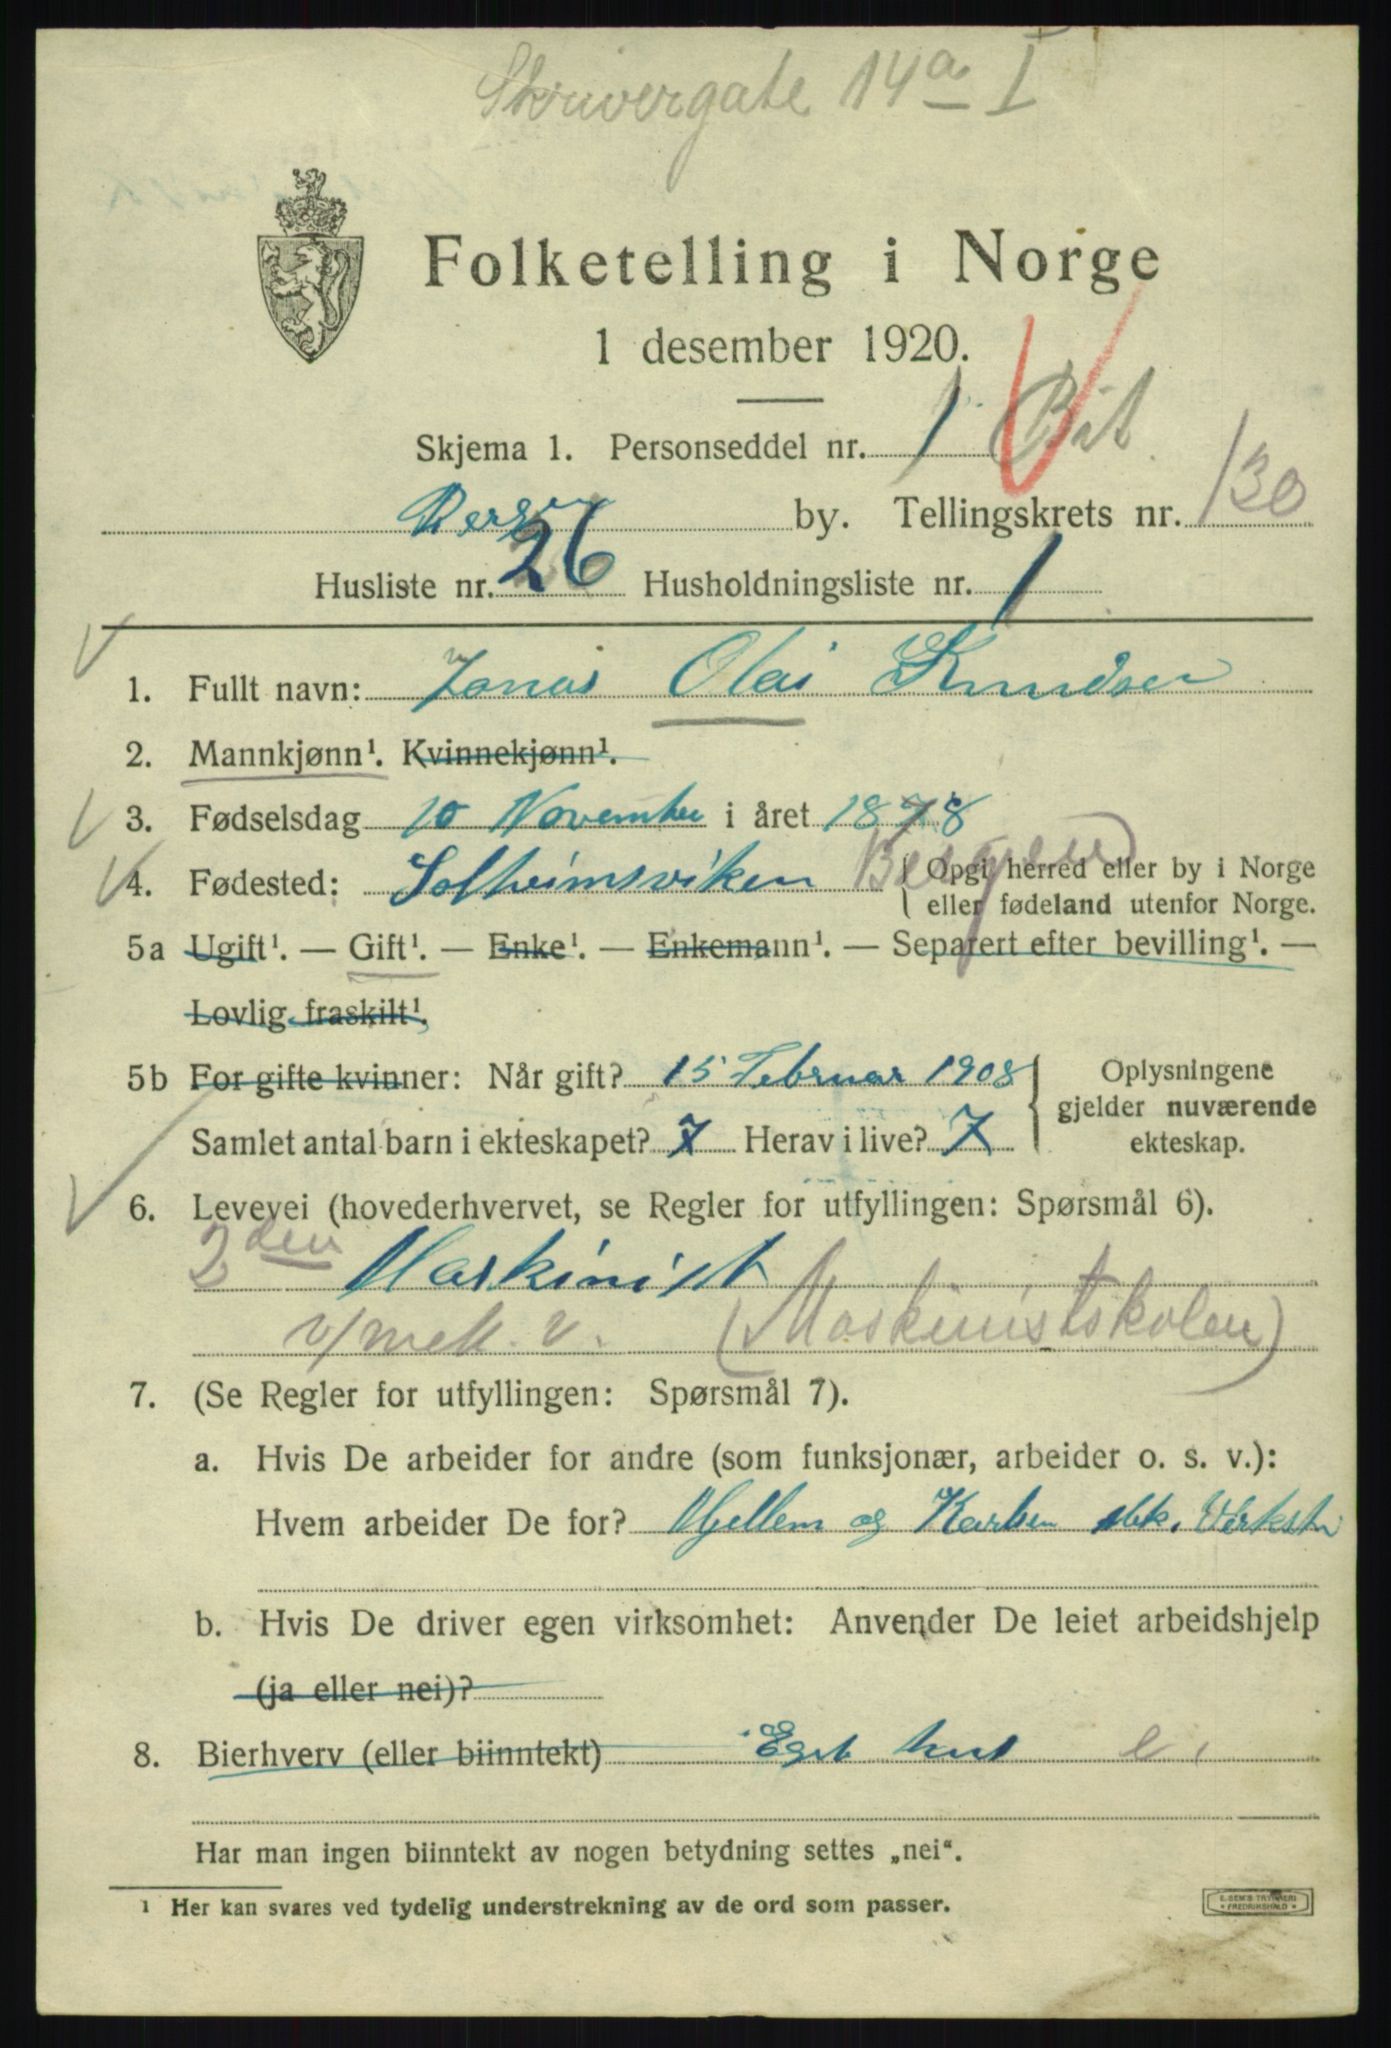 Skrivergate 14a I
Folketelling i Norge
1 desember 1920.
Skjema 1. Personseddel nr. 1
by. Tellingskrets nr. 130
Husliste nr. 26 Husholdningsliste nr. 1
1. Fullt navn: Jonas Olai Knudsen
2. Mannkjønn¹. Kvinnekjønn¹.
3. Fødselsdag 10 November i året 1878
4. Fødested: Solheimsviken Bergen { Opgi herred eller by i Norge
eller fødeland utenfor Norge.
5a Ugift¹. — Gift¹. — Enke¹. — Enkemann¹. — Separert efter bevilling¹. —
Lovlig fraskilt¹.
5b For gifte kvinner: Når gift? 15 Februar 1908 } Oplysningene
gjelder nuværende
Samlet antal barn i ekteskapet? 7 Herav i live? 7 ekteskap.
6. Levevei (hovederhvervet, se Regler for utfyllingen: Spørsmål 6).
2den Maskinist
v/mek. v. (Maskinistskolen)
7. (Se Regler for utfyllingen: Spørsmål 7).
a. Hvis De arbeider for andre (som funksjonær, arbeider o. s. v.):
Hvem arbeider De for? Mjellem og Karlsen Mek. Verkst
b. Hvis De driver egen virksomhet: Anvender De leiet arbeidshjelp
(ja eller nei)?
8. Bierhverv (eller biinntekt) Eget hus e.
Har man ingen biinntekt av nogen betydning settes „nei“.
¹ Her kan svares ved tydelig understrekning av de ord som passer.
E. SEM'S TRYKKERI
FREDRIKSHALD